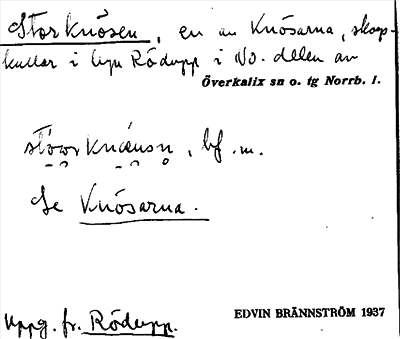 Storknösen, en av Knösarna, skogs-
kullar i byn Rödupp i No. delen av
Överkalix sn o. tg Norrb. l.
bf. m.
Se Knösarna.
EDVIN BRÄNNSTRÖM 1937
Uppg. fr. Rödupp.